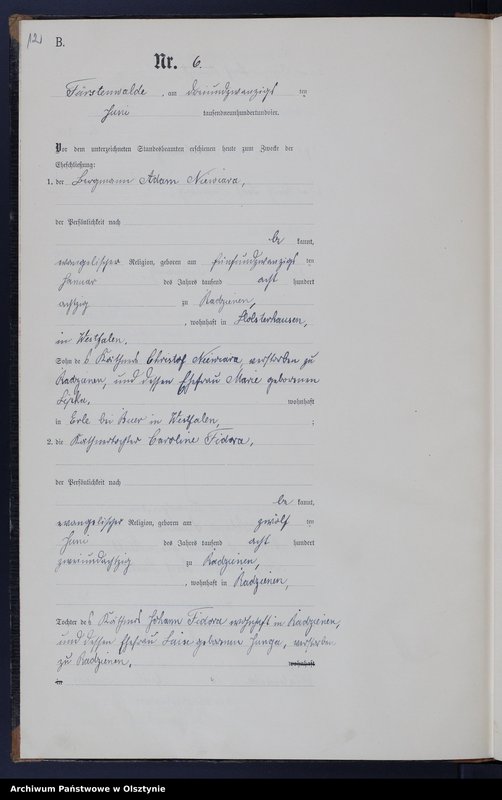 12
B.
Nr. 6.
Fürstenwalde, am dreiundzwanzigsten
Juni tausendneunhundertundvier.
Vor dem unterzeichneten Standesbeamten erschienen heute zum Zwecke der
Eheschließung:
1. der Bergmann Adam Niewiara,
der Persönlichkeit nach
be kannt,
evangelischer Religion, geboren am fünfundzwanzigsten
Januar des Jahres tausend acht hundert
achtzig zu Radzienen,
, wohnhaft in Holsterhausen,
in Westfalen,
Sohn des Käthners Christof Niewiara, verstorben zu
Radzienen, und dessen Ehefrau Marie geborenen
wohnhaft
in Erle bei Buer in Westfalen, ;
2. die Käthnertochter Caroline Fidora,
der Persönlichkeit nach
be kannt,
evangelischer Religion, geboren am zwölf ten
Juni des Jahres tausend acht hundert
zweiundachtzig zu Radzienen,
, wohnhaft in Radzienen,
Tochter des Käthners Johann Fidora wohnhaft in Radzienen,
und dessen Ehefrau geborenen verstorben
zu Radzienen. wohnhaft
in
Archiwum Państwowe w Olsztynie